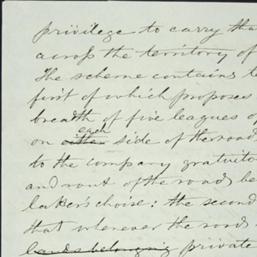 privilege to carry tha
across the territory of
The scheme contains t
first of which proposes
breadth of five leagues o
each
on either side of the road
to the company gratuito
and rout of the road be
latter's choise: the second
that wherever the roads
lands belonging private